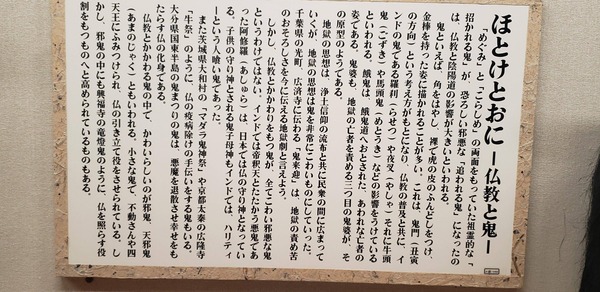 ほとけとおに ―仏教と鬼―
「めぐみ」と「こらしめ」の両面をもっていた祖霊的な「
招かれる鬼」が、恐ろしい邪悪な「追われる鬼」になったの
は、仏教と陰陽道の影響が大きいといわれる。
鬼といえば、角をはやし、裸で虎の皮のふんどしをつけ、
金棒を持った姿に描かれることが多い。これは、鬼門(丑寅
の方向)という考え方がもとになり、仏教の普及と共に、イ
ンドの鬼である羅刹(らせつ)や夜叉(やしゃ)それに牛頭
鬼(ごずき)や馬頭鬼(めとうき)などの影響をうけている
といわれる。餓鬼は、餓鬼道へおとされた、あわれな亡者の
姿である。鬼婆も、地獄の亡者を責める三つ目の鬼婆が、そ
の原型のようである。
地獄の思想は、浄土信仰の流布と共に民衆の間に広まって
いくが、地獄の思想は鬼を非常にこわいものにしていった。
千葉県の光町、広済寺に伝わる「鬼来迎」は、地獄の責め苦
のおそろしさを今に伝える地獄劇と言えよう。
しかし、仏教とかかわりをもつ鬼が、全てこわい邪悪な鬼
というわけではない。インドでは帝釈天とたたかう悪鬼であ
った阿修羅(あしゅら)は、日本では仏の守り神となってい
る。子供の守り神とされる鬼子母神もインドでは、ハリティ
ーという人喰い鬼であった。
また茨城県大和村の「マダラ鬼神祭」や京都太秦の広隆寺
「牛祭」のように、仏の疫病除けの手伝いをする鬼もいる。
大分県国東半島の鬼まつりの鬼は、悪魔を退散させ幸せをも
たらす仏の化身である。
仏教とかかわる鬼の中で、かわいらしいのが邪鬼。天邪鬼
(あまのじゃく)ともいわれる。小さな鬼で、不動さんや四
天王にふみつけられ、仏の引き立て役をさせられている。し
かし、邪鬼の中にも興福寺の竜燈鬼のように、仏を照らす役
割をもつものへと高められているものもある。